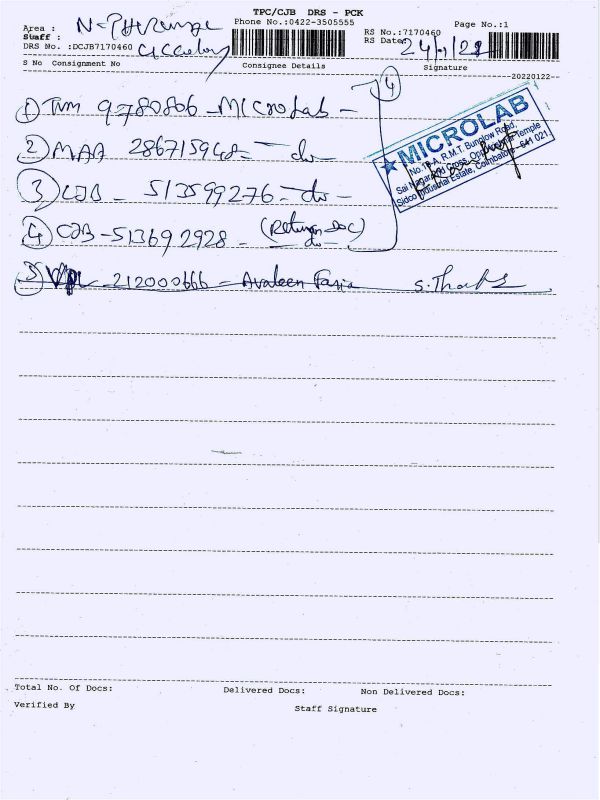 TPC/CJB DRS - PCK
Area :
Phone No.:0422-3505555
Page No.:1
Staff :
RS No.:7170460
DRS No. :DCJB7170460
RS Date: 24/1/22
S No Consignment No
Consignee Details
Signature
20220122
4
1 TVM 9780806 - MICROLAB -
2 MAA 286715948 - do -
3 CJB - 513599276 - do -
4 CJB - 513692928 - (Return Doc) do -
5 212000666 - Avaleen Faria
MICROLAB
R.M.T. Bunglow Road,
Cross, Opp. Temple
Sidco Industrial Estate, Coimbatore - 641 021.
Total No. Of Docs:
Delivered Docs:
Non Delivered Docs:
Verified By
Staff Signature